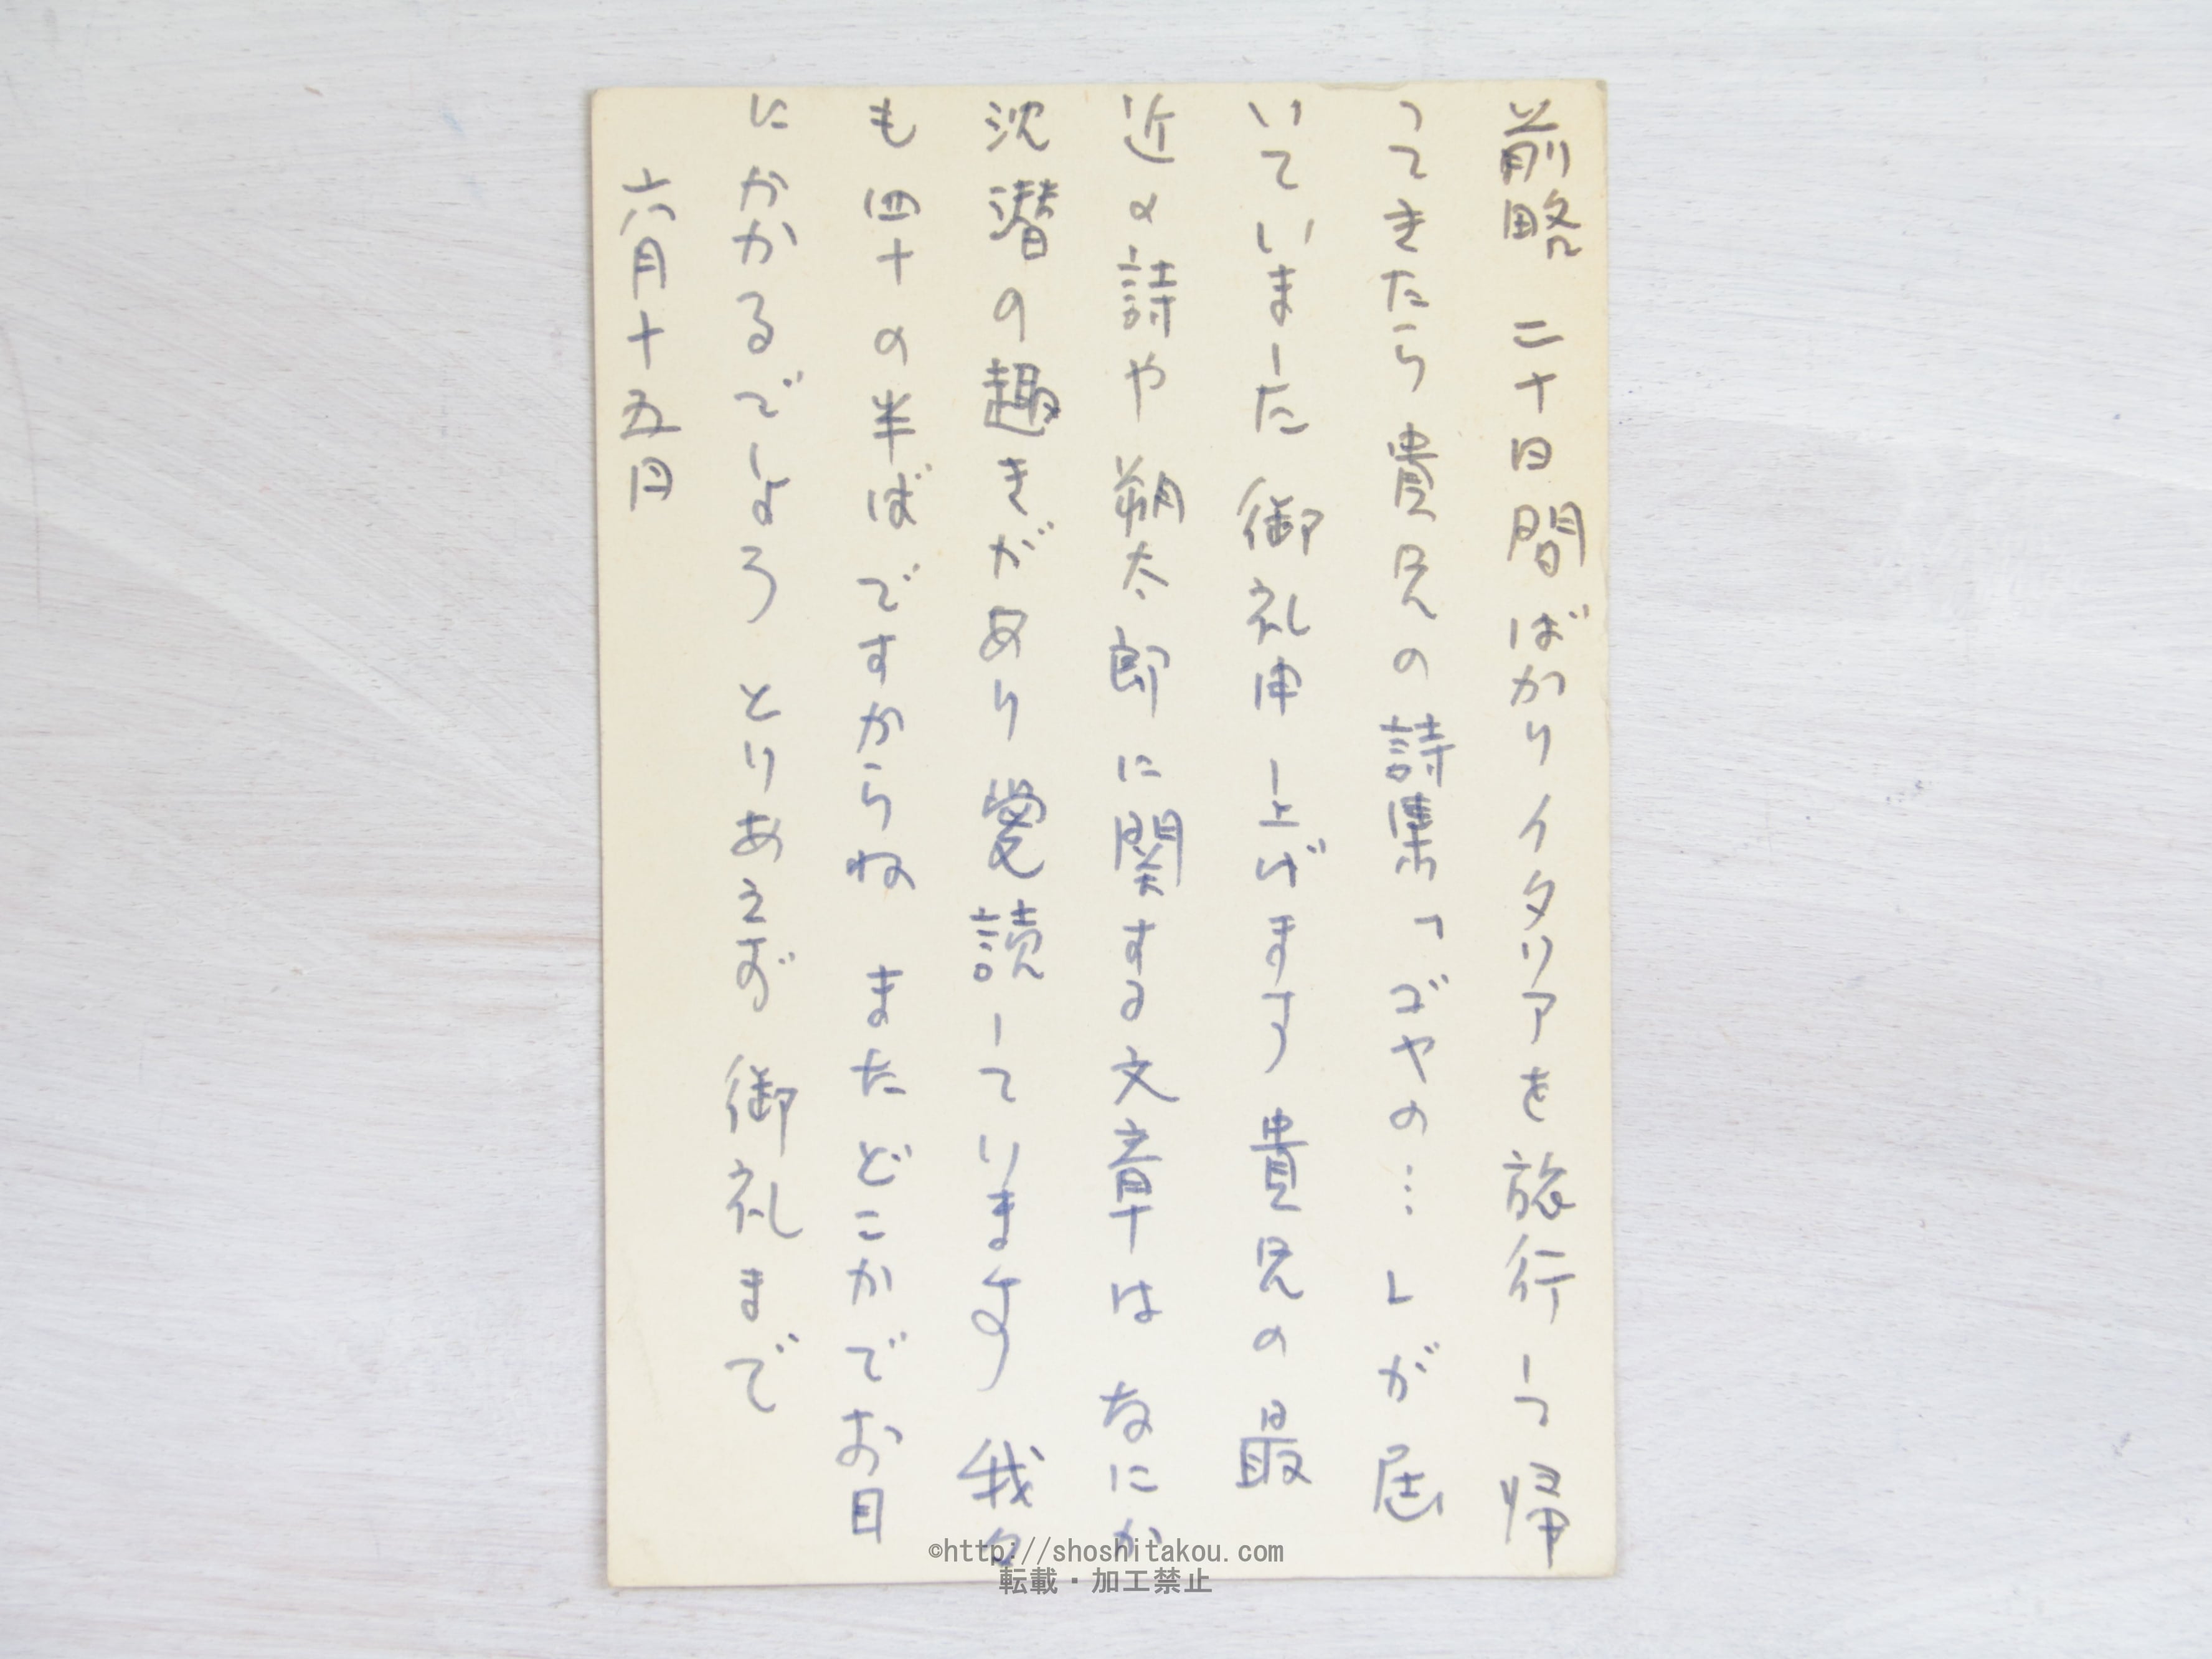 前略 二十日間ばかりイタリアを旅行しっ帰
ってきたら貴兄の詩集「ゴヤの…」が届
いていました 御礼申し上げます 貴兄の最
近の詩や朔太郎に関する文章は なにか
沈潜の趣きがあり 愛読しております 我々
も四十の半ばですからね またどこかでお目
にかかるでしょう とりあえず 御礼まで
六月十五日
©http://shoshitakou.com
転載・加工禁止